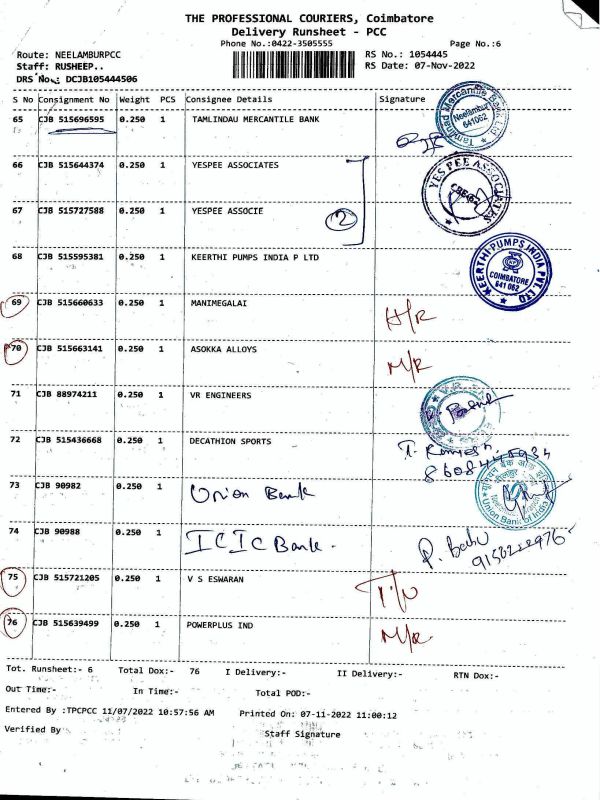 THE PROFESSIONAL COURIERS, Coimbatore
Delivery Runsheet - PCC
Phone No.:0422-3505555 Page No.:6
Route: NEELAMBURPCC RS No.: 1054445
Staff: RUSHEEP.. RS Date: 07-Nov-2022
DRS No.: DCJB105444506
S No Consignment No Weight PCS Consignee Details Signature
65 CJB 515696595 0.250 1 TAMLINDAU MERCANTILE BANK
Tamilnad Mercantile Bank Ltd
Neelambur
641062
66 CJB 515644374 0.250 1 YESPEE ASSOCIATES
YES PEE ASSOCIATES
67 CJB 515727588 0.250 1 YESPEE ASSOCIE 2
68 CJB 515595381 0.250 1 KEERTHI PUMPS INDIA P LTD
KEERTHI PUMPS INDIA PVT. LTD
COIMBATORE
641 062
69 CJB 515660633 0.250 1 MANIMEGALAI H/R
70 CJB 515663141 0.250 1 ASOKKA ALLOYS M/R
71 CJB 88974211 0.250 1 VR ENGINEERS
72 CJB 515436668 0.250 1 DECATHION SPORTS
73 CJB 90982 0.250 1 Union Bank
Union Bank of India
74 CJB 90988 0.250 1 ICIC Bank. P. Babu
75 CJB 515721205 0.250 1 V S ESWARAN
76 CJB 515639499 0.250 1 POWERPLUS IND M/R
Tot. Runsheet:- 6 Total Dox:- 76 I Delivery:- II Delivery:- RTN Dox:-
Out Time:- In Time:- Total POD:-
Entered By :TPCPCC 11/07/2022 10:57:56 AM Printed On: 07-11-2022 11:00:12
Verified By Staff Signature